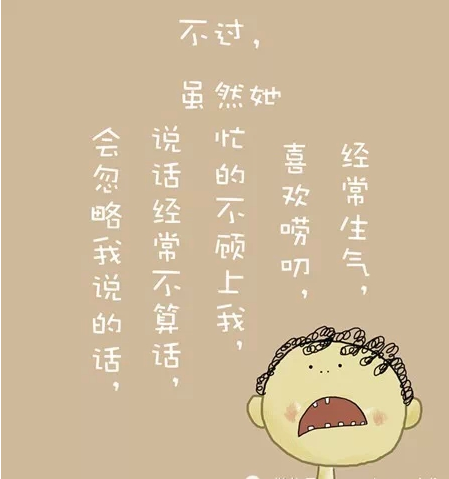 不过，
虽然她
经常生气，
喜欢唠叨，
忙的不顾上我，
说话经常不算话，
会忽略我说的话，